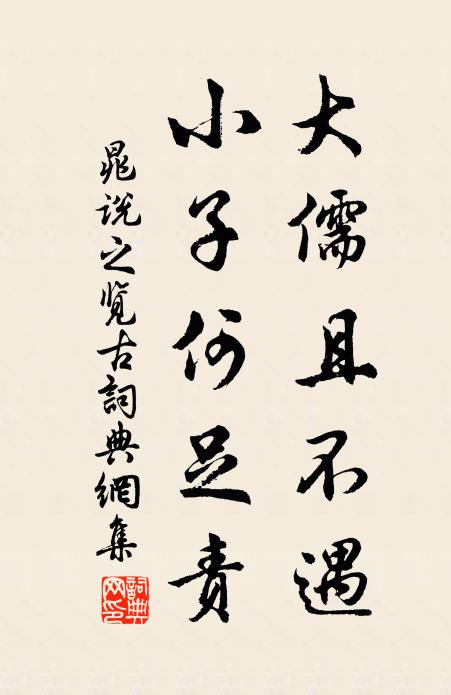 大儒且不遇
小子何足责
晁说之览古詞典網集
詞典网印